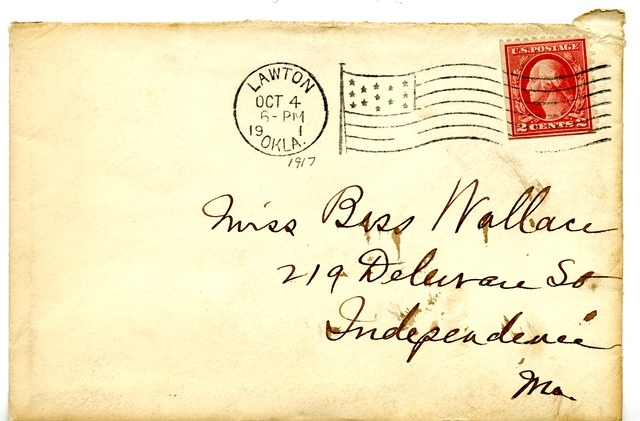 LAWTON
OCT 4
6-PM
19 1
OKLA.
1917
U.S. POSTAGE
2 CENTS 2
Miss Bess Wallace
219 Delaware St
Independence
Mo.